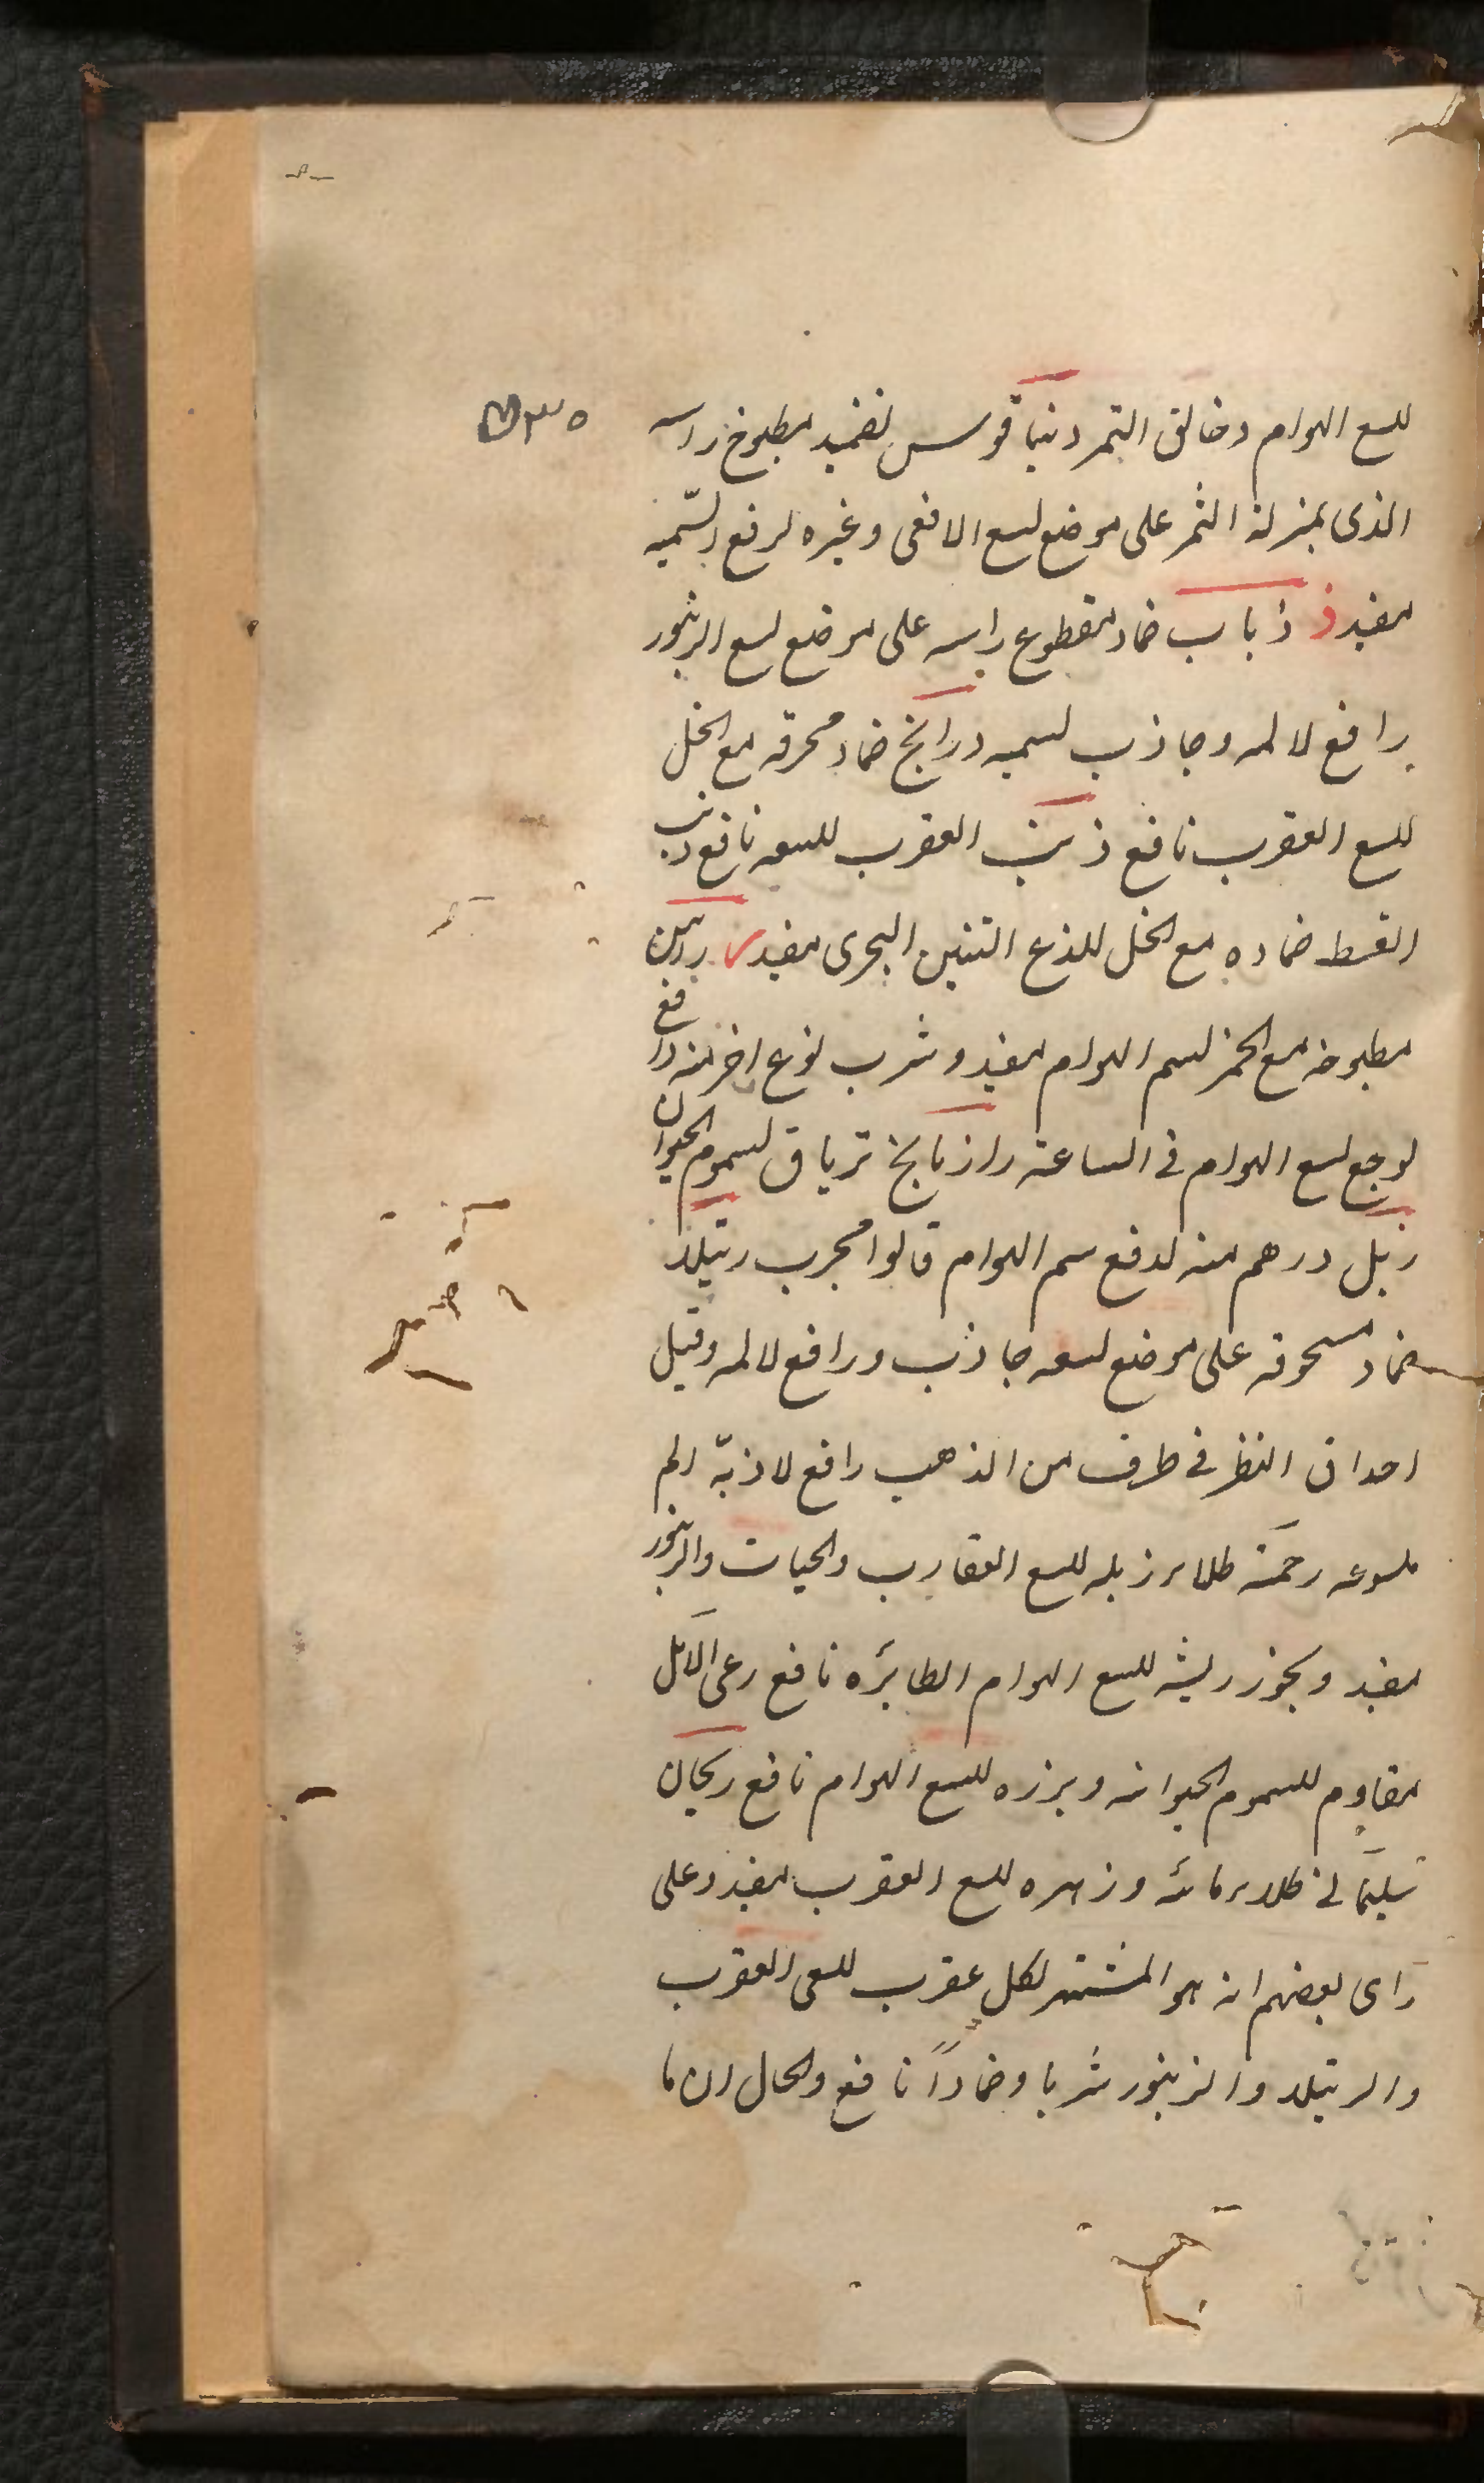 للسع الهوام وخالق التمر دنياقوس تضميد مطبوخ راسه
الذى بمنزلة الثمر على موضع لسع الافعى وغيره لرفع السّميه
مفيد ذ ذباب ضماد مقطوع راسه على موضع لسع الزنبور
رافع لالمه وجاذب لسميه درانج ضماد محرقه مع الخل
للسع العقرب نافع ذنب العقرب للسعه نافع ذنب
القسط ضماده مع الخل للذع التنين البحرى مفيد ر راسن
مطبوخه مع الخمر لسم الهوام مفيد وشرب نوع اخر منه رافع
لوجع لسع الهوام فى الساعة رازيانج ترياق لسموم الحيوان
زبل درهم منه لدفع سم الهوام قالوا مجرب رتيلا
ضماد مسحوقه على موضع لسعه جاذب ورافع لالمه وقيل
احداق النظر فى طرف من الذهب رافع لاذية الم
ملسوعه رخمة طلاء زبله للسع العقارب والحيات والزنبور
مفيد وبخور ريشه للسع الهوام الطايره نافع رعى الابل
مقاوم للسموم الحيوانيه وبزره للسع الهوام نافع ريحان
سليمانى طلاء مائه وزهره للسع العقرب مفيد وعلى
راى بعضهم انه هو المشتهر لكل عقرب للسعى العقرب
والرتيلا والزنبور شربا وضمادًا نافع والحال ان ما